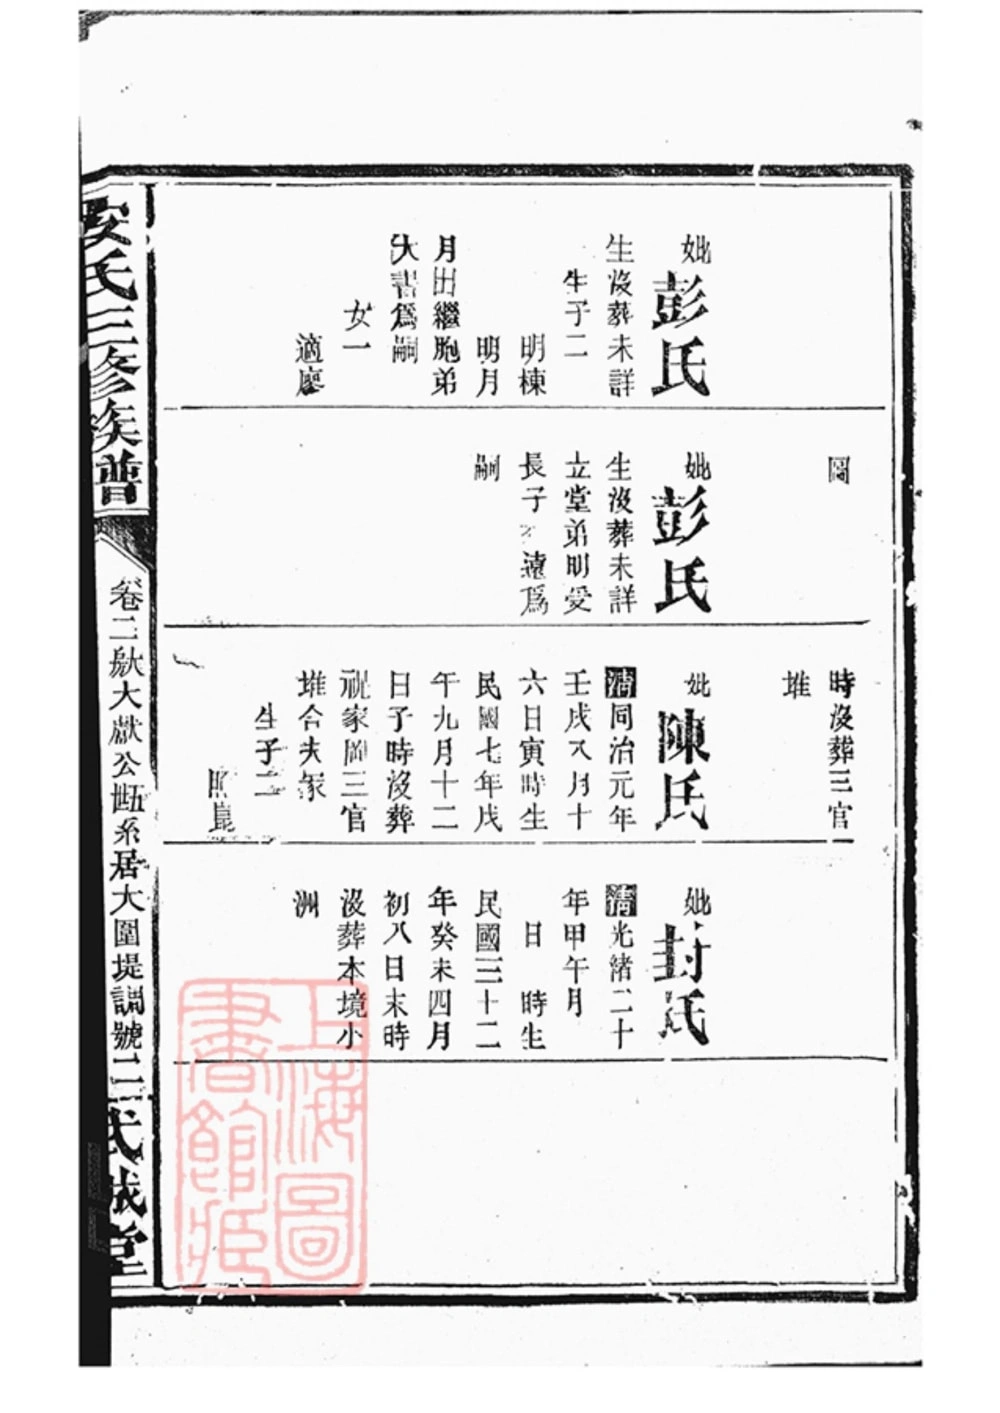 妣
彭氏
生沒葬未詳
生子二
明棟
明月
月出繼胞弟
大書爲嗣
女一
適廖
圖
妣
彭氏
生沒葬未詳
立堂弟明受
長子遠爲
嗣
時沒葬三官
堆
妣
陳氏
清同治元年
壬戌八月十
六日寅時生
民國七年戊
午九月十二
日子時沒葬
祝家岡三官
堆合夫冢
生子二
照崑
妣
封氏
清光緒二十
年甲午月
日 時生
民國三十二
年癸未四月
初八日未時
沒葬本境小
洲
安氏三修族譜
卷二 大獻公 系居大圍堤調號 二 武威堂
上海圖
書館藏